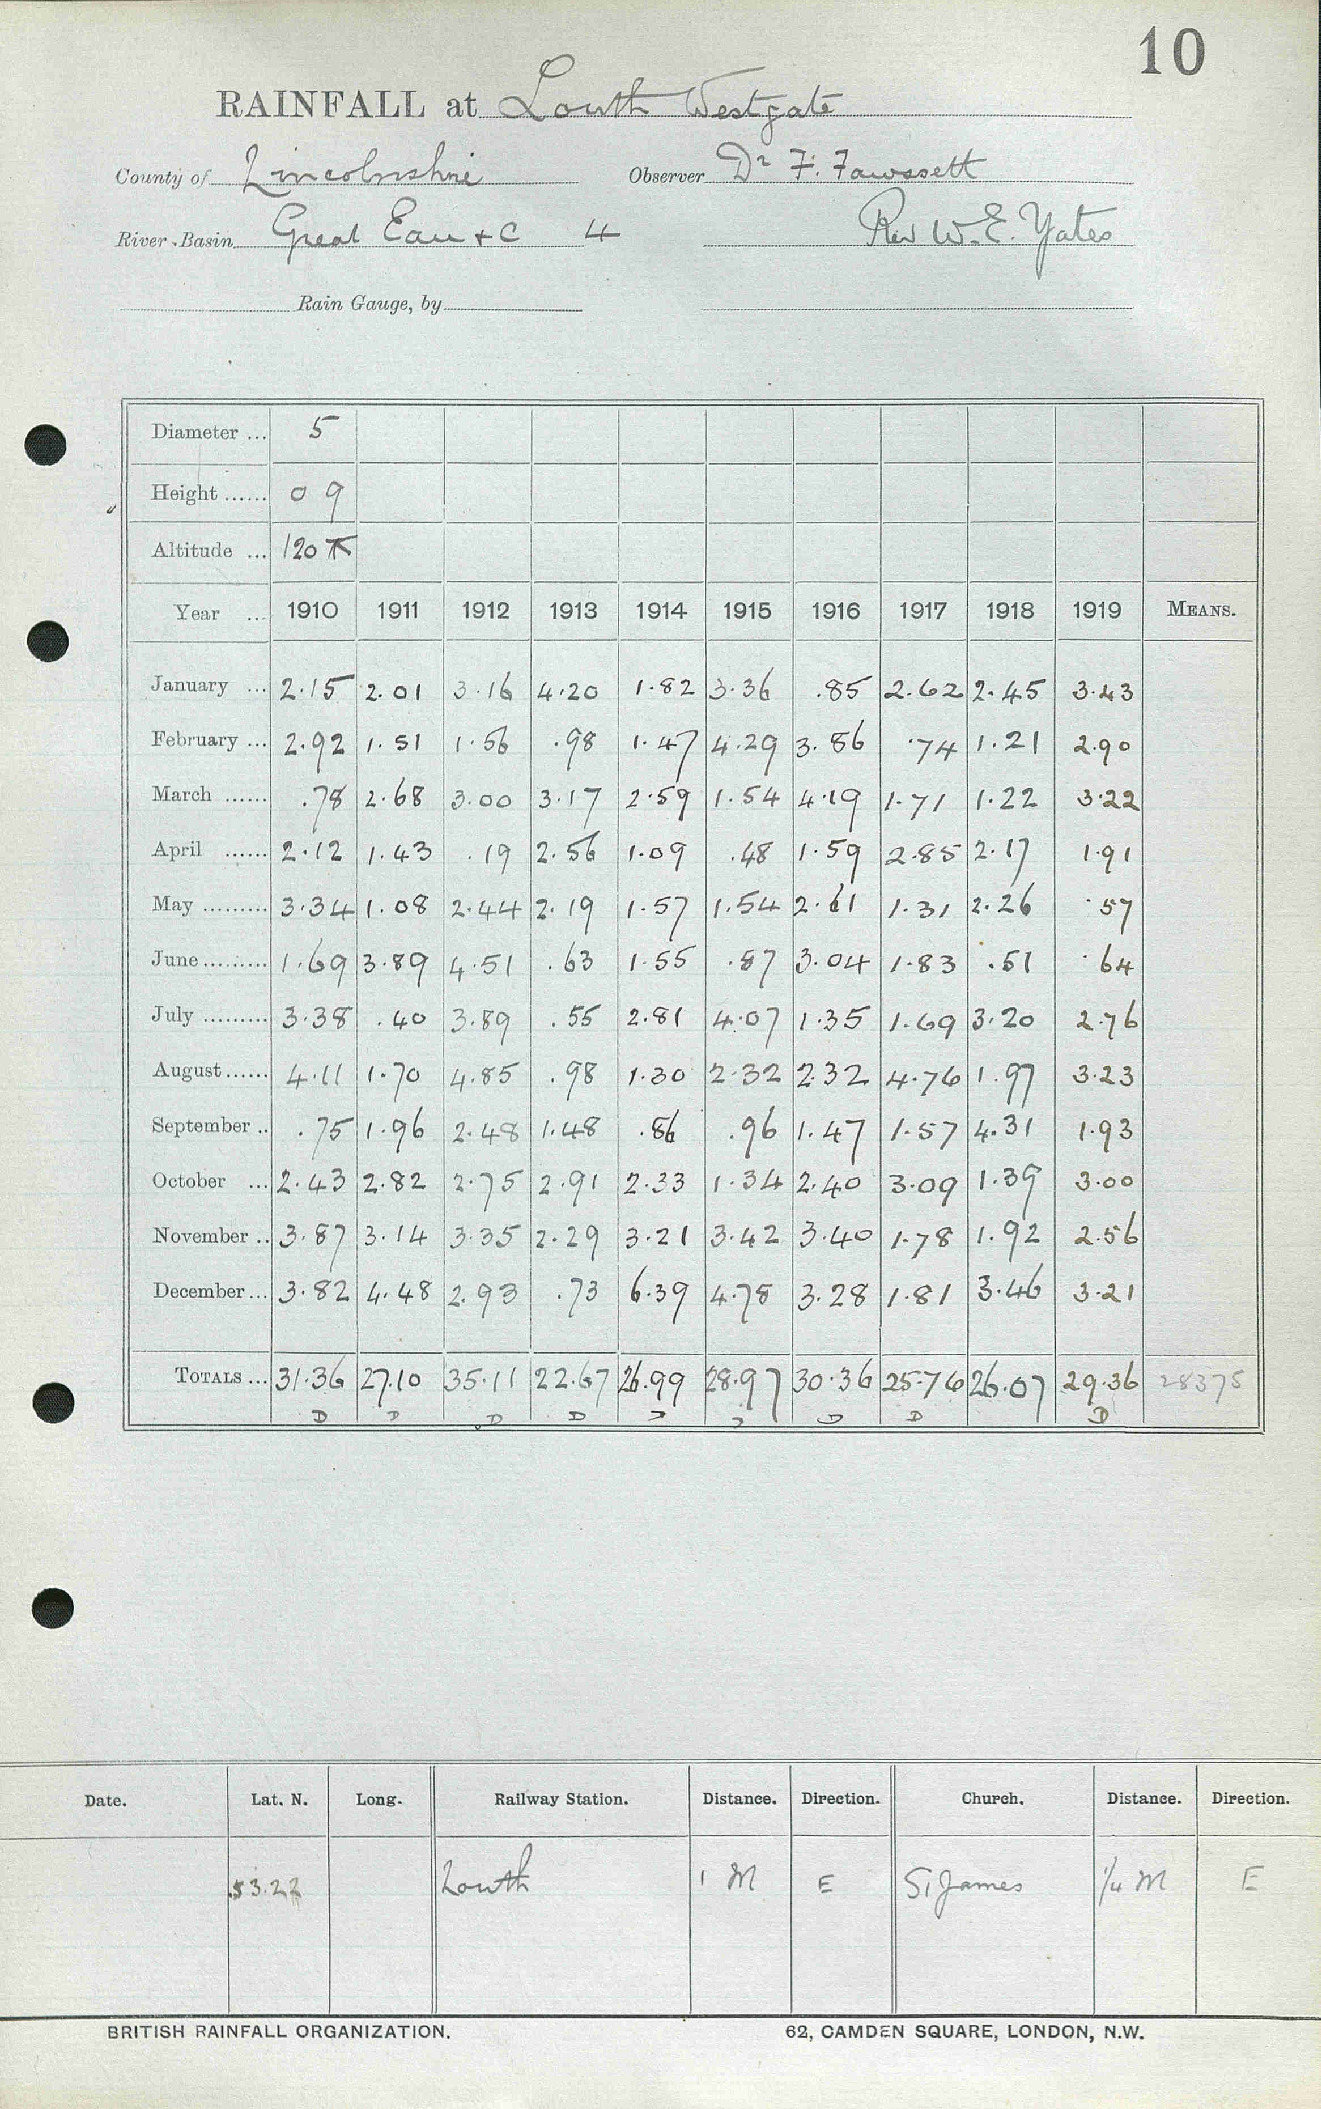 10
RAINFALL at Louth Westgate
County of Lincolnshire Observer Dr F. Fawssett
River Basin Great Eau & C 4 Rev W. E. Yates
Rain Gauge, by
Diameter ... 5
Height ...... 0 9
Altitude ... 120
Year ... 1910 1911 1912 1913 1914 1915 1916 1917 1918 1919 MEANS.
January ... 2.15 2.01 3.16 4.20 1.82 3.36 .85 2.62 2.45 3.43
February ... 2.92 1.51 1.56 .98 1.47 4.29 3.86 .74 1.21 2.90
March ...... .78 2.68 3.00 3.17 2.59 1.54 4.19 1.71 1.22 3.22
April ...... 2.12 1.43 .19 2.56 1.09 .48 1.59 2.85 2.17 1.91
May ......... 3.34 1.08 2.44 2.19 1.57 1.54 2.61 1.31 2.26 .57
June ......... 1.69 3.89 4.51 .63 1.55 .87 3.04 1.83 .51 .64
July ......... 3.38 .40 3.89 .55 2.81 4.07 1.35 1.69 3.20 2.76
August ...... 4.11 1.70 4.85 .98 1.30 2.32 2.32 4.76 1.97 3.23
September .. .75 1.96 2.48 1.48 .86 .96 1.47 1.57 4.31 1.93
October ... 2.43 2.82 2.75 2.91 2.33 1.34 2.40 3.09 1.39 3.00
November .. 3.87 3.14 3.35 2.29 3.21 3.42 3.40 1.78 1.92 2.56
December ... 3.82 4.48 2.93 .73 6.39 4.78 3.28 1.81 3.46 3.21
TOTALS ... 31.36 27.10 35.11 22.67 26.99 28.97 30.36 25.76 26.07 29.36 28375
D D D D D D D D D
Date. Lat. N. Long. Railway Station. Distance. Direction. Church. Distance. Direction.
53.22 Louth 1 M E St James 1/4 M E
BRITISH RAINFALL ORGANIZATION. 62, CAMDEN SQUARE, LONDON, N.W.